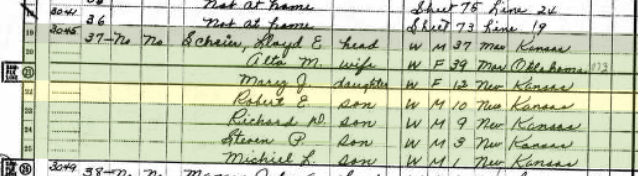 Not at home Sheet 75 Line 24
3041 36 Not at home Sheet 73 Line 19
19 3045 37 No No Schaier, Lloyd E. head W M 37 Mar Kansas
20 Alta M. wife W F 39 Mar Oklahoma 073
21 Mary J. daughter W F 12 Nev Kansas
22 Robert E. son W M 10 Nev Kansas
23 Richard D. son W M 9 Nev Kansas
24 Steven P. son W M 3 Nev Kansas
25 Michiel L. son W M 1 Nev Kansas
3049 38 No No